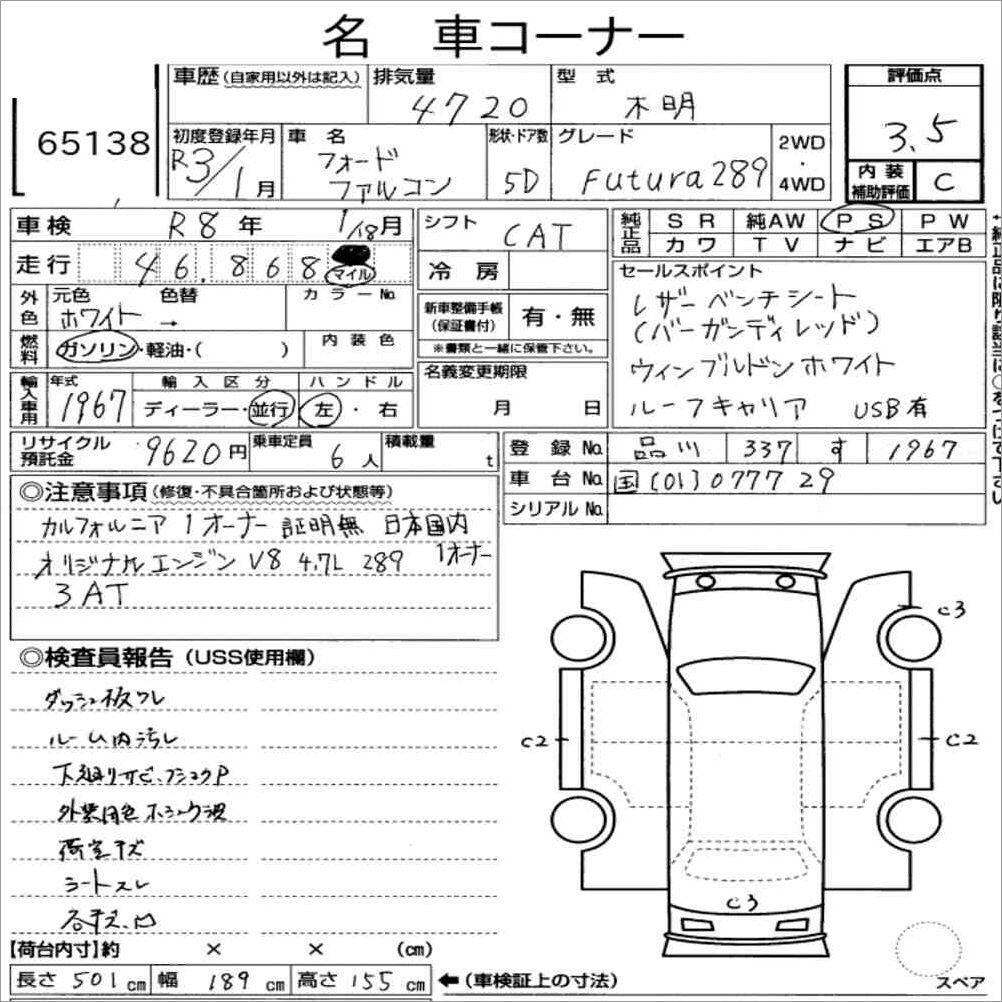 名 車コーナー
65138
車歴(自家用以外は記入)
排気量
4720
型式
不明
評価点
3.5
初度登録年月
R3/1月
車名
フォード
ファルコン
形状・ドア数
5D
グレード
Futura289
2WD
・
4WD
内装
補助評価
C
車検 R8年 1/18月
シフト
CAT
純正品
SR 純AW PS PW
カワ TV ナビ エアB
走行 46.868 マイル
冷房
セールスポイント
レザーベンチシート
(バーガンディレッド)
ウィンブルドンホワイト
ルーフキャリア USB有
外色
元色
ホワイト
色替
→
カラーNo.
新車整備手帳
(保証書付)
有・無
※書類と一緒に保管下さい。
燃料
ガソリン・軽油・( )
内装色
輸入車用
年式
1967
輸入区分
ディーラー・並行
ハンドル
左・右
名義変更期限
月 日
リサイクル
預託金
9620円
乗車定員
6人
積載量
t
登録No. 品川 337 す 1967
車台No. 国(01)077729
シリアルNo.
◎注意事項(修復・不具合箇所および状態等)
カルフォルニア 1オーナー 証明無 日本国内
1オーナー
オリジナルエンジン V8 4.7L 289
3AT
◎検査員報告(USS使用欄)
ダッシュ板ワレ
ルーム内汚レ
下廻りサビ、
荷室キズ
シートスレ
C3
C2
C2
C3
【荷台内寸】約 × × (cm)
長さ 501 cm 幅 189 cm 高さ 155 cm ←(車検証上の寸法)
スペア